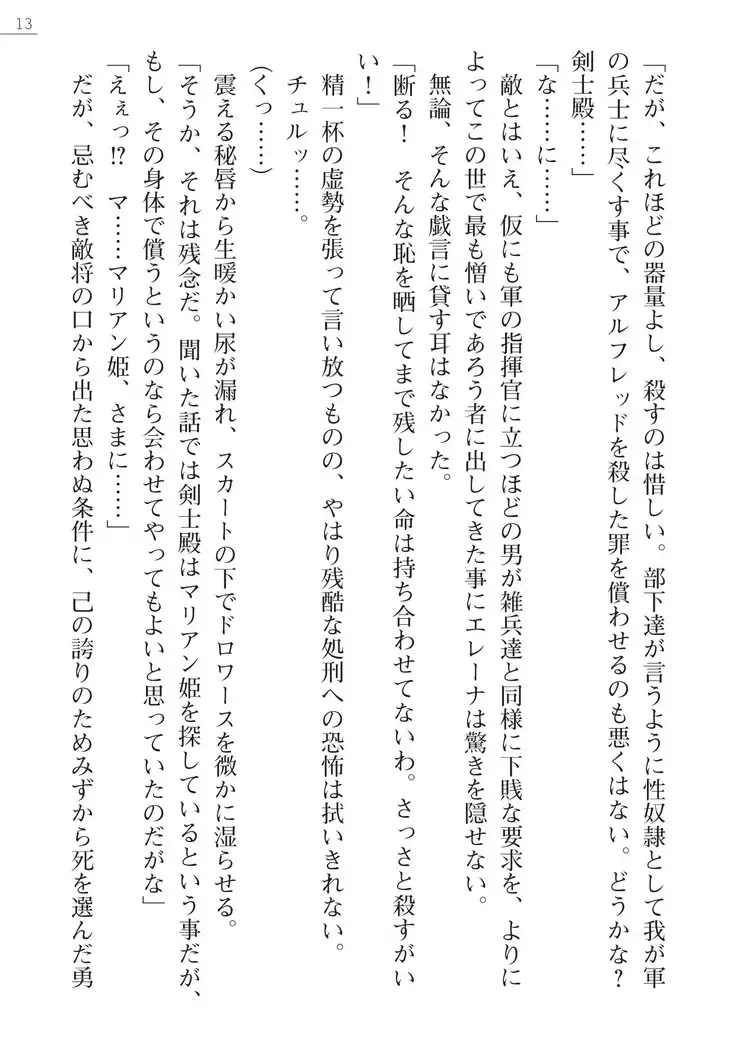 13
「だが、これほどの器量よし、殺すのは惜しい。部下達が言うように性奴隷として我が軍
の兵士に尽くす事で、アルフレッドを殺した罪を償わせるのも悪くはない。どうかな？
剣士殿……」
「な……に……」
　敵とはいえ、仮にも軍の指揮官に立つほどの男が雑兵達と同様に下賎な要求を、よりに
よってこの世で最も憎いであろう者に出してきた事にエレーナは驚きを隠せない。
　無論、そんな戯言に貸す耳はなかった。
「断る！　そんな恥を晒してまで残したい命は持ち合わせてないわ。さっさと殺すがい
い！」
　精一杯の虚勢を張って言い放つものの、やはり残酷な処刑への恐怖は拭いきれない。
　チュルッ……。
（くっ……）
　震える秘唇から生暖かい尿が漏れ、スカートの下でドロワースを微かに湿らせる。
「そうか、それは残念だ。聞いた話では剣士殿はマリアン姫を探しているという事だが、
もし、その身体で償うというのなら会わせてやってもよいと思っていたのだがな」
「えぇっ!?　マ……マリアン姫、さまに……」
　だが、忌むべき敵将の口から出た思わぬ条件に、己の誇りのためみずから死を選んだ勇